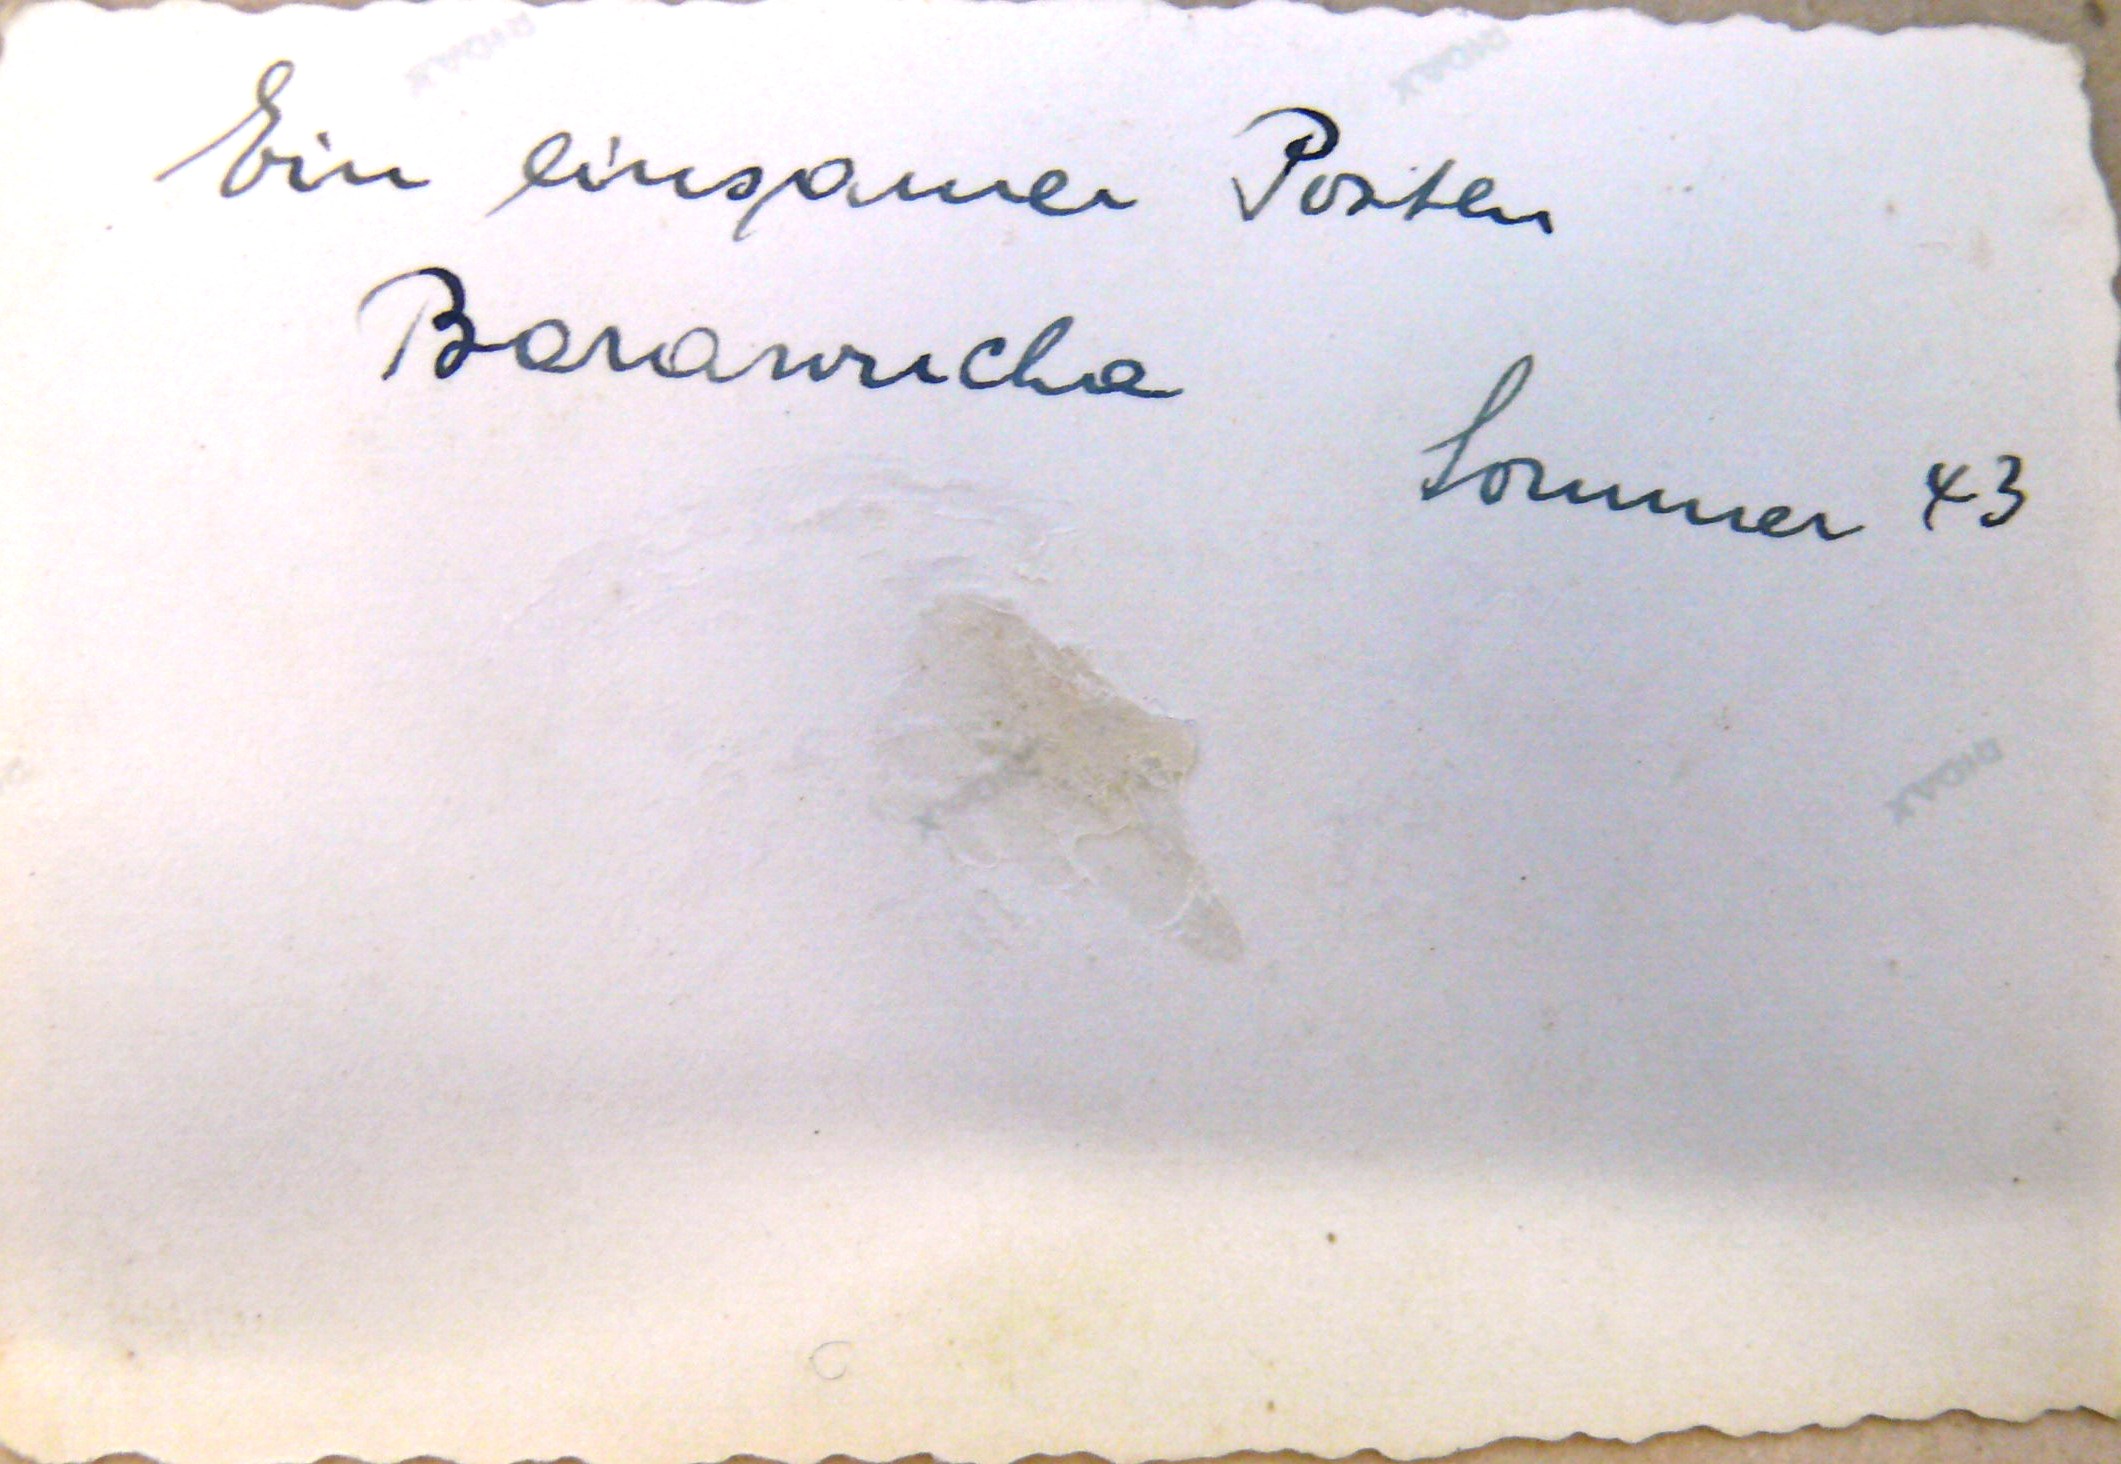 Ein einsamer Posten
Barawucha
Sommer 43